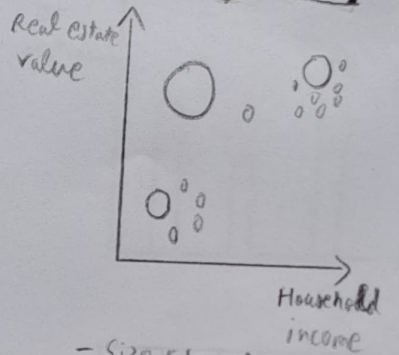 Real estate
value
Household
income